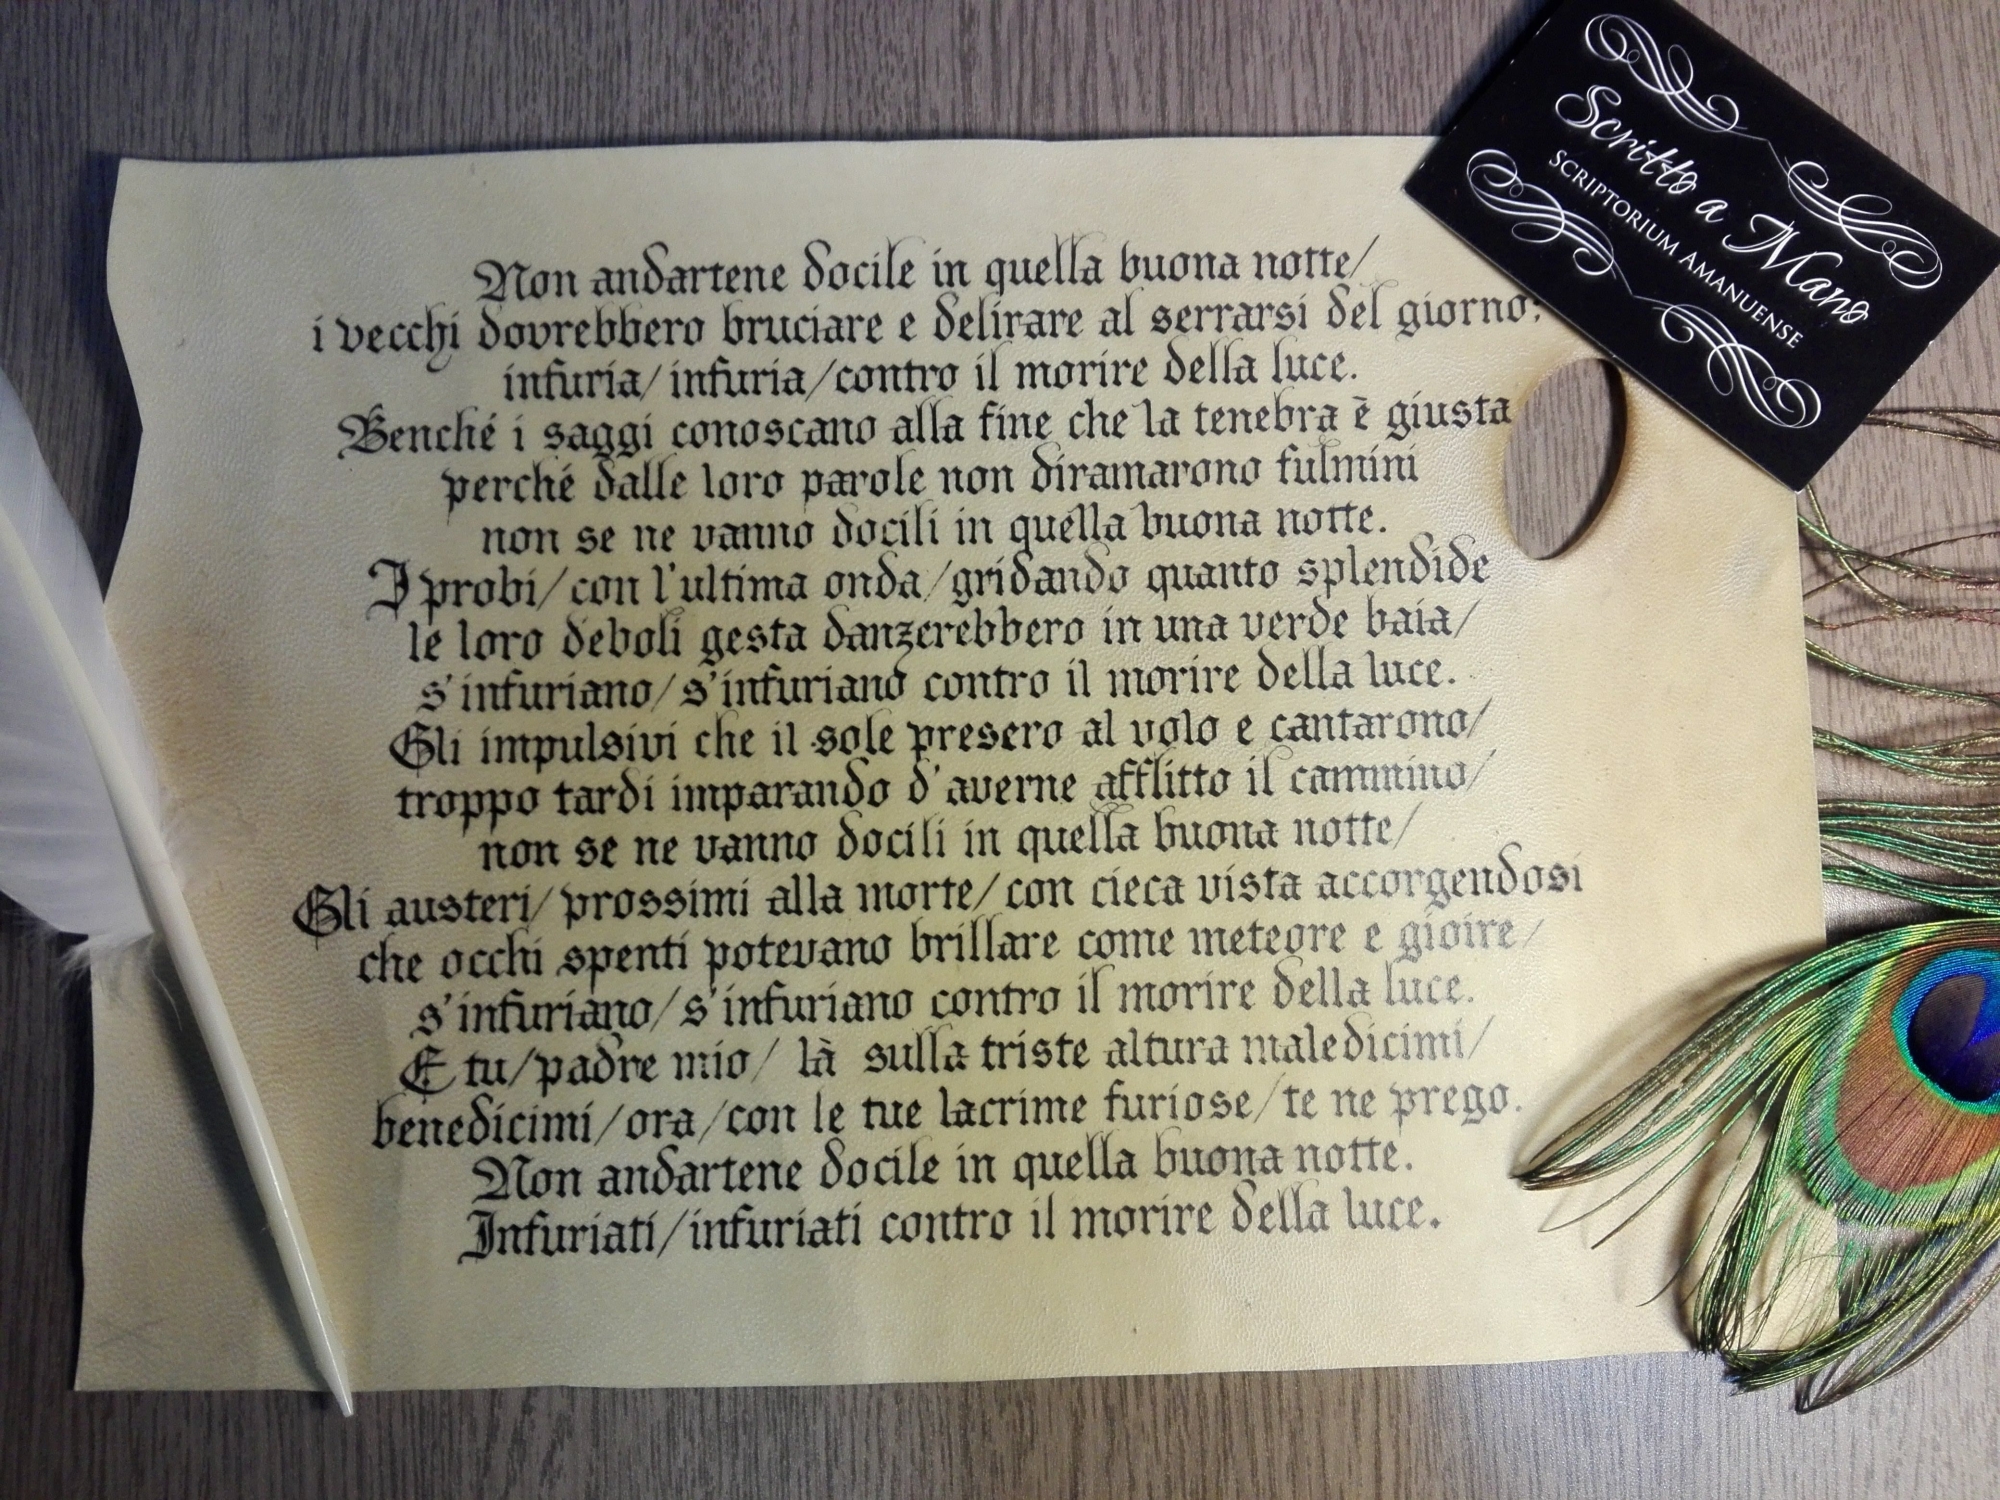 Non andartene docile in quella buona notte/
i vecchi dovrebbero bruciare e delirare al serrarsi del giorno;
infuria/ infuria/contro il morire della luce.
Benché i saggi conoscano alla fine che la tenebra è giusta
perché dalle loro parole non diramarono fulmini
non se ne vanno docili in quella buona notte.
I probi/con l'ultima onda/gridando quanto splendide
le loro deboli gesta danzerebbero in una verde baia/
s'infuriano/s'infuriano contro il morire della luce.
Gli impulsivi che il sole presero al volo e cantarono/
troppo tardi imparando d'averne afflitto il cammino/
non se ne vanno docili in quella buona notte/
Gli austeri/prossimi alla morte/con cieca vista accorgendosi
che occhi spenti potevano brillare come meteore e gioire/
s'infuriano/s'infuriano contro il morire della luce.
E tu/padre mio/ là sulla triste altura maledicimi/
benedicimi/ora/con le tue lacrime furiose/te ne prego.
Non andartene docile in quella buona notte.
Infuriati/infuriati contro il morire della luce.
Scritto a Mano
SCRIPTORIUM AMANUENSE